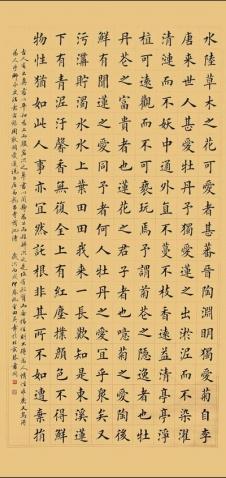 水陸草木之花可愛者甚蕃晉陶淵明獨愛菊自李
唐來世人甚愛牡丹予獨愛蓮之出淤泥而不染濯
清漣而不妖中通外直不蔓不枝香遠益清亭亭淨
植可遠觀而不可褻玩焉予謂菊花之隱逸者也牡
丹花之富貴者也蓮花之君子者也噫菊之愛陶後
鮮有聞蓮之愛同予者何人牡丹之愛宜乎眾矣又
污溝貯濁水水上葉田田我來一長歎知是東溪蓮
下有青泥汙馨香無復全上有紅塵撲顏色不得鮮
物性猶如此人事亦宜然託根非其所不如遭棄捐